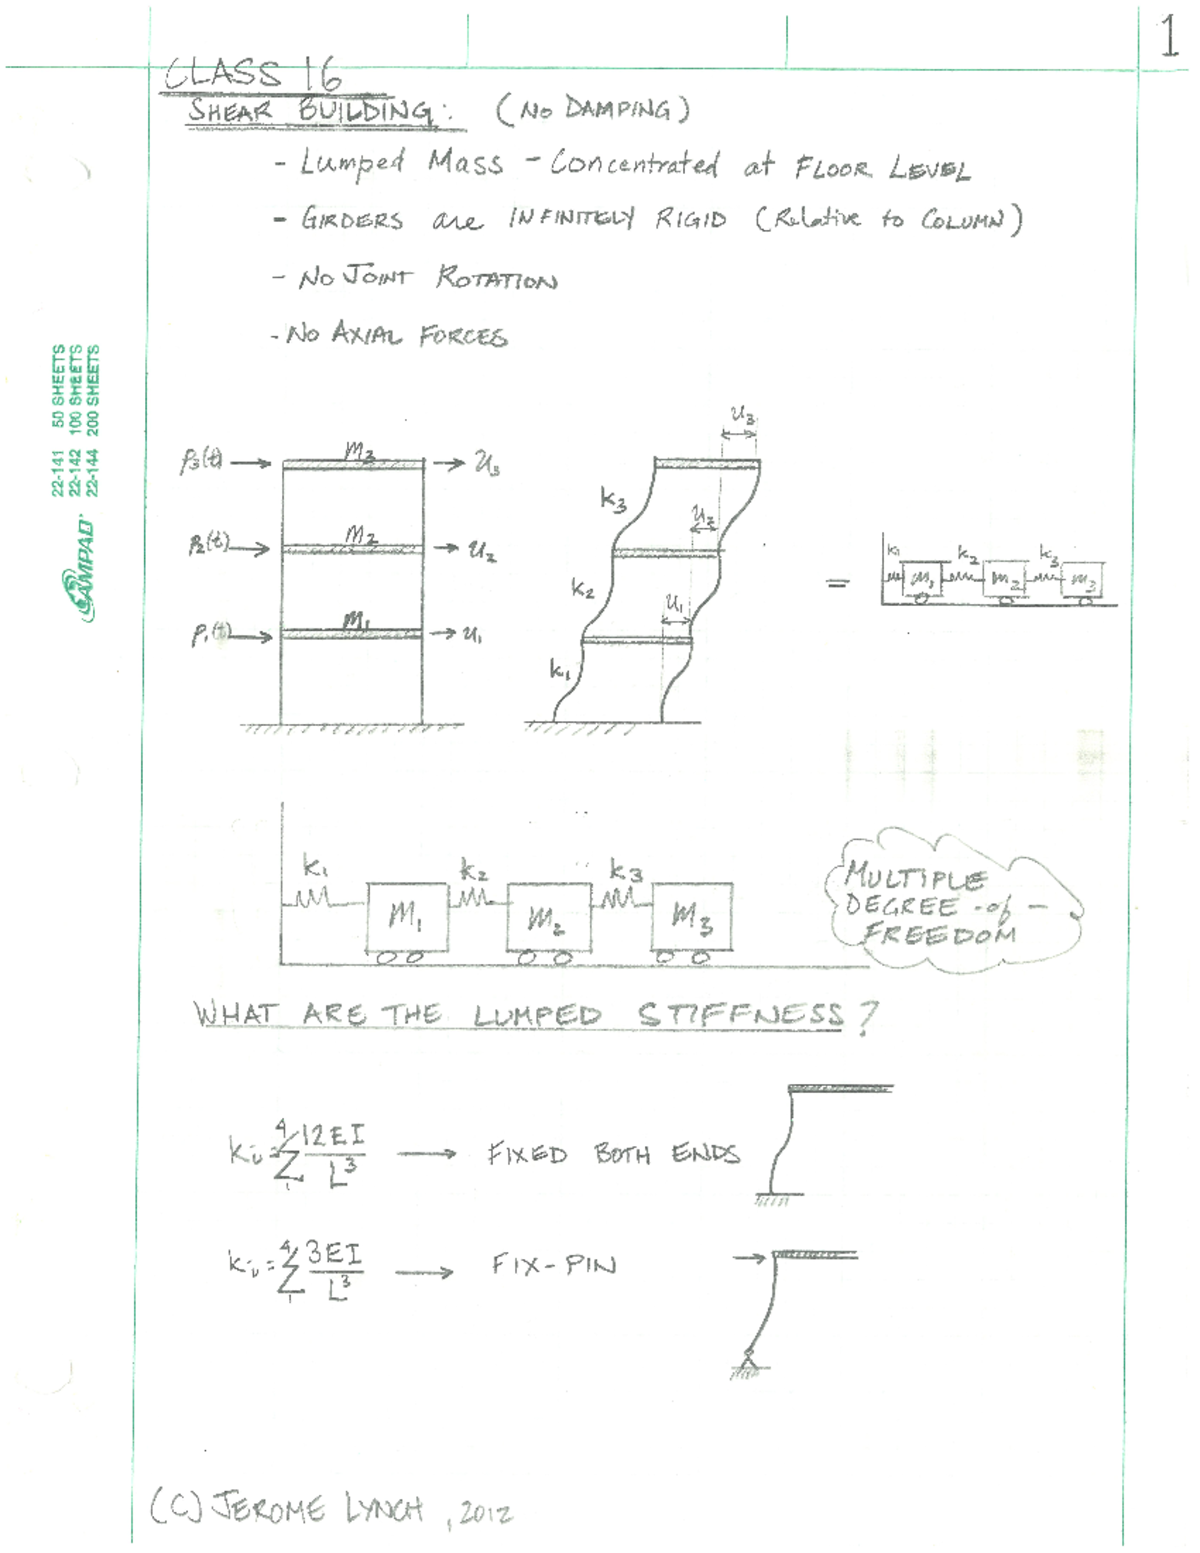 1
CLASS 16
SHEAR BUILDING: (NO DAMPING)
- Lumped Mass - Concentrated at FLOOR LEVEL
- GIRDERS are INFINITELY RIGID (Relative to COLUMN)
- NO JOINT ROTATION
- NO AXIAL FORCES
22-141 50 SHEETS
22-142 100 SHEETS
22-144 200 SHEETS
AMPAD
p₃(t) m₃ u₃
p₂(t) m₂ u₂
p₁(t) m₁ u₁
u₃
k₃
u₂
k₂
u₁
k₁
=
k₁ k₂ k₃
m₁ m₂ m₃
k₁ k₂ k₃
m₁ m₂ m₃
MULTIPLE
DEGREE-of-
FREEDOM
WHAT ARE THE LUMPED STIFFNESS?
kᵢ = 4 Σ 1 12EI / L³ → FIXED BOTH ENDS
kᵢ = 4 Σ 1 3EI / L³ → FIX-PIN
(C) JEROME LYNCH, 2012